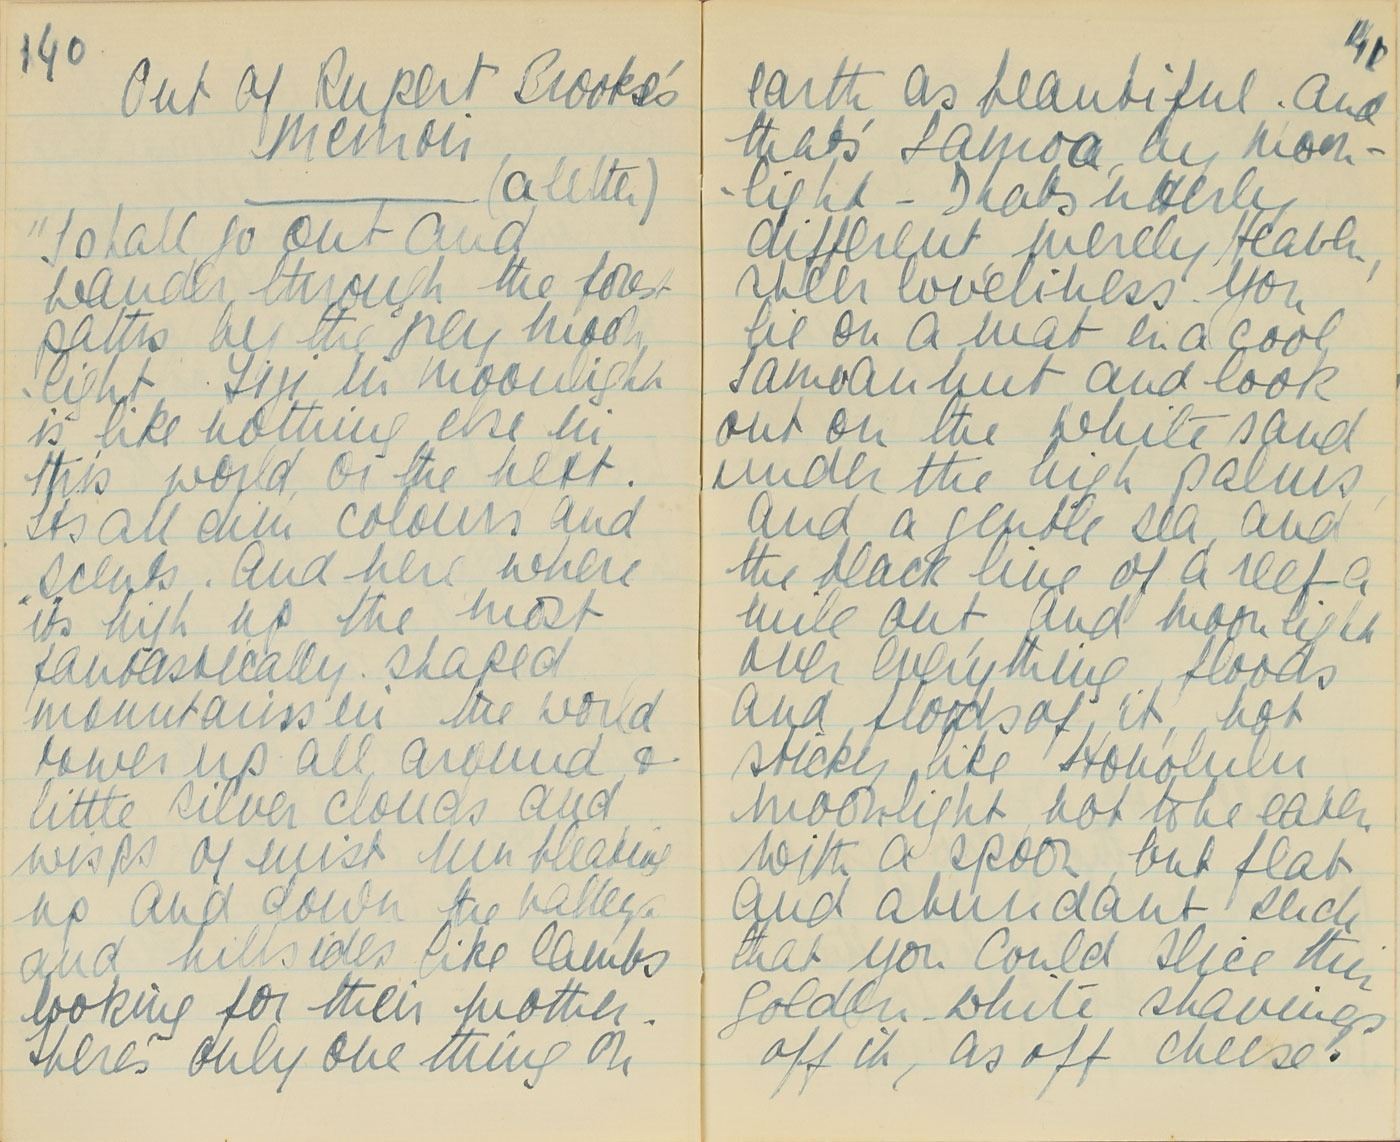 140
Out of Rupert Brooke's
Memoir
(a letter)
"I shall go out and
wander through the forest
paths by the grey moon
-light. Fiji in moonlight
is like nothing else in
this world, or the next.
Its all dim colours and
scents. And here where
its high up the most
fantastically shaped
mountains in the world
tower up all around &
little silver clouds and
wisps of mist run bleating
up and down the valleys
and hillsides like lambs
looking for their mother.
There's only one thing on
141
earth as beautiful. And
that's Samoa by moon-
-light - That's utterly
different, merely Heaven,
sheer loveliness. You
lie on a mat in a cool
Samoan hut and look
out on the white sand
under the high palms,
and a gentle sea, and
the black line of a reef a
mile out and moonlight
over everything, floods
and floods of it, not
sticky like Honolulu
moonlight, not to be eaten
with a spoon, but flat
and abundant such
that you could slice thin
golden-white shavings
off it, as off cheese.